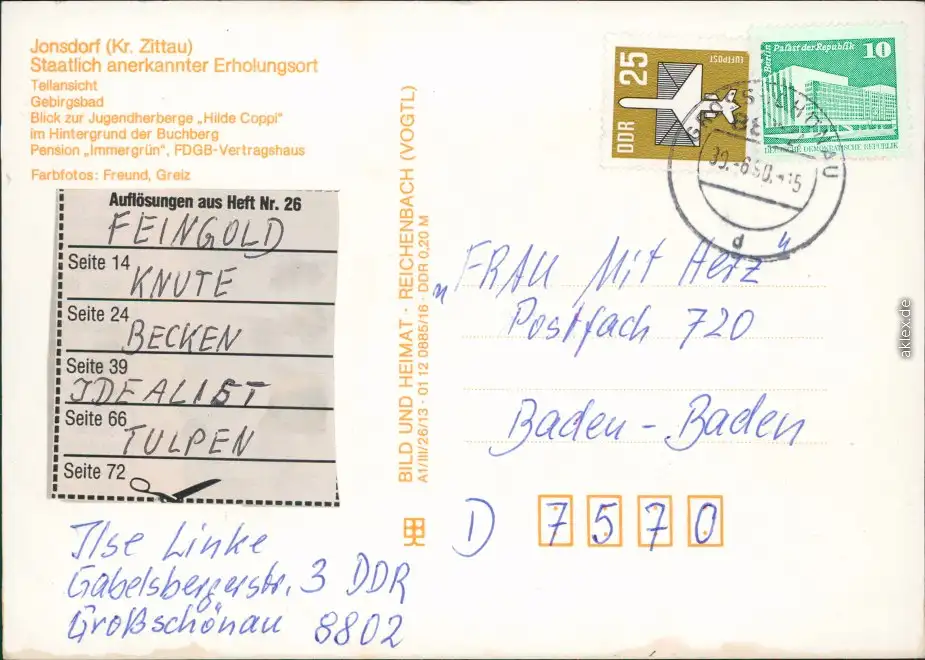 Jonsdorf (Kr. Zittau)
Staatlich anerkannter Erholungsort
Teilansicht
Gebirgsbad
Blick zur Jugendherberge „Hilde Coppi"
im Hintergrund der Buchberg
Pension „Immergrün", FDGB-Vertragshaus
Farbfotos: Freund, Greiz
Auflösungen aus Heft Nr. 26
FEINGOLD
Seite 14
KNUTE
Seite 24
BECKEN
Seite 39
IDEALIST
Seite 66
TULPEN
Seite 72
Ilse Linke
Gabelsbergerstr. 3 DDR
Großschönau 8802
BILD UND HEIMAT · REICHENBACH (VOGTL)
A1/III/26/13 · 01 12 0885/16 · DDR 0,20 M
DDR 25
LUFTPOST
Berlin Palast der Republik 10
DEUTSCHE DEMOKRATISCHE REPUBLIK
d
„FRAU Mit Herz"
Postfach 720
Baden-Baden
D 7570
aklex.de